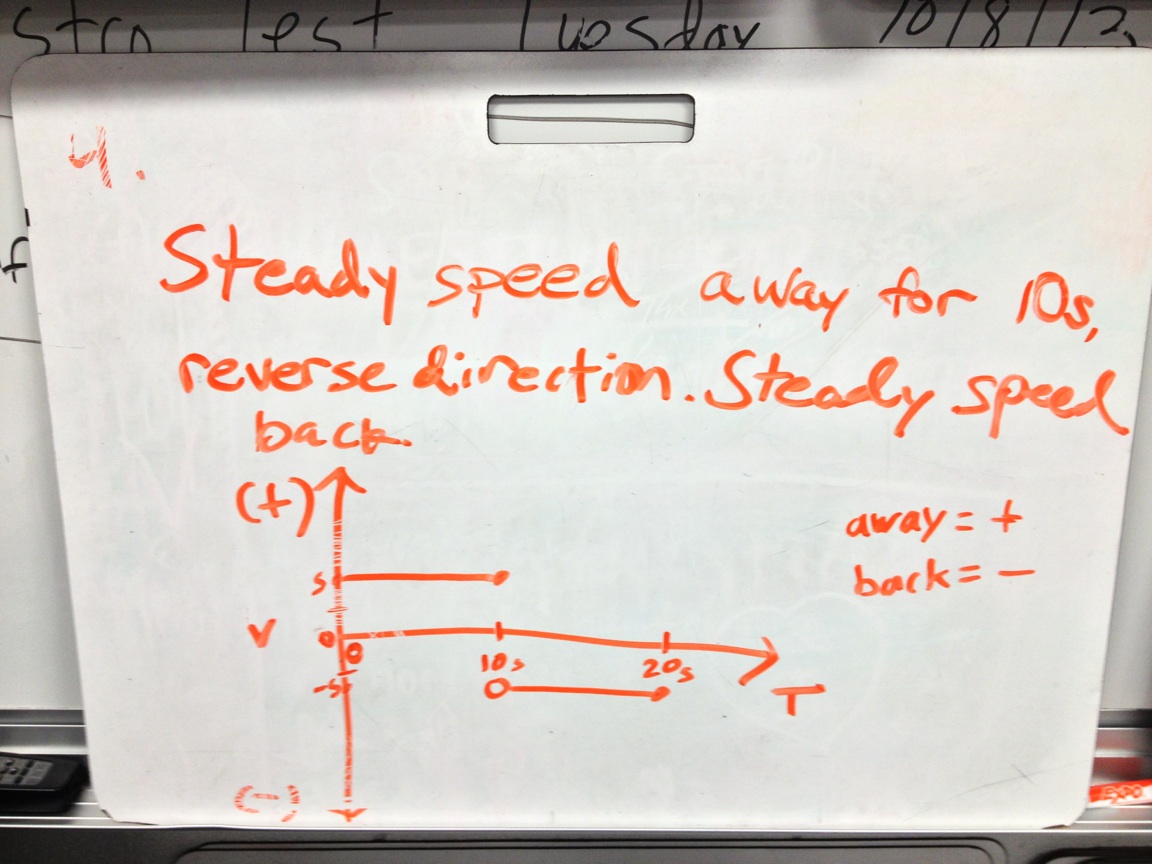 Test Tuesday 10/8/12
4.
Steady speed away for 10s,
reverse direction. Steady speed
back.
(+)
away = +
back = -
5
V
0
0
10s
20s
-5
T
(-)
EXPO